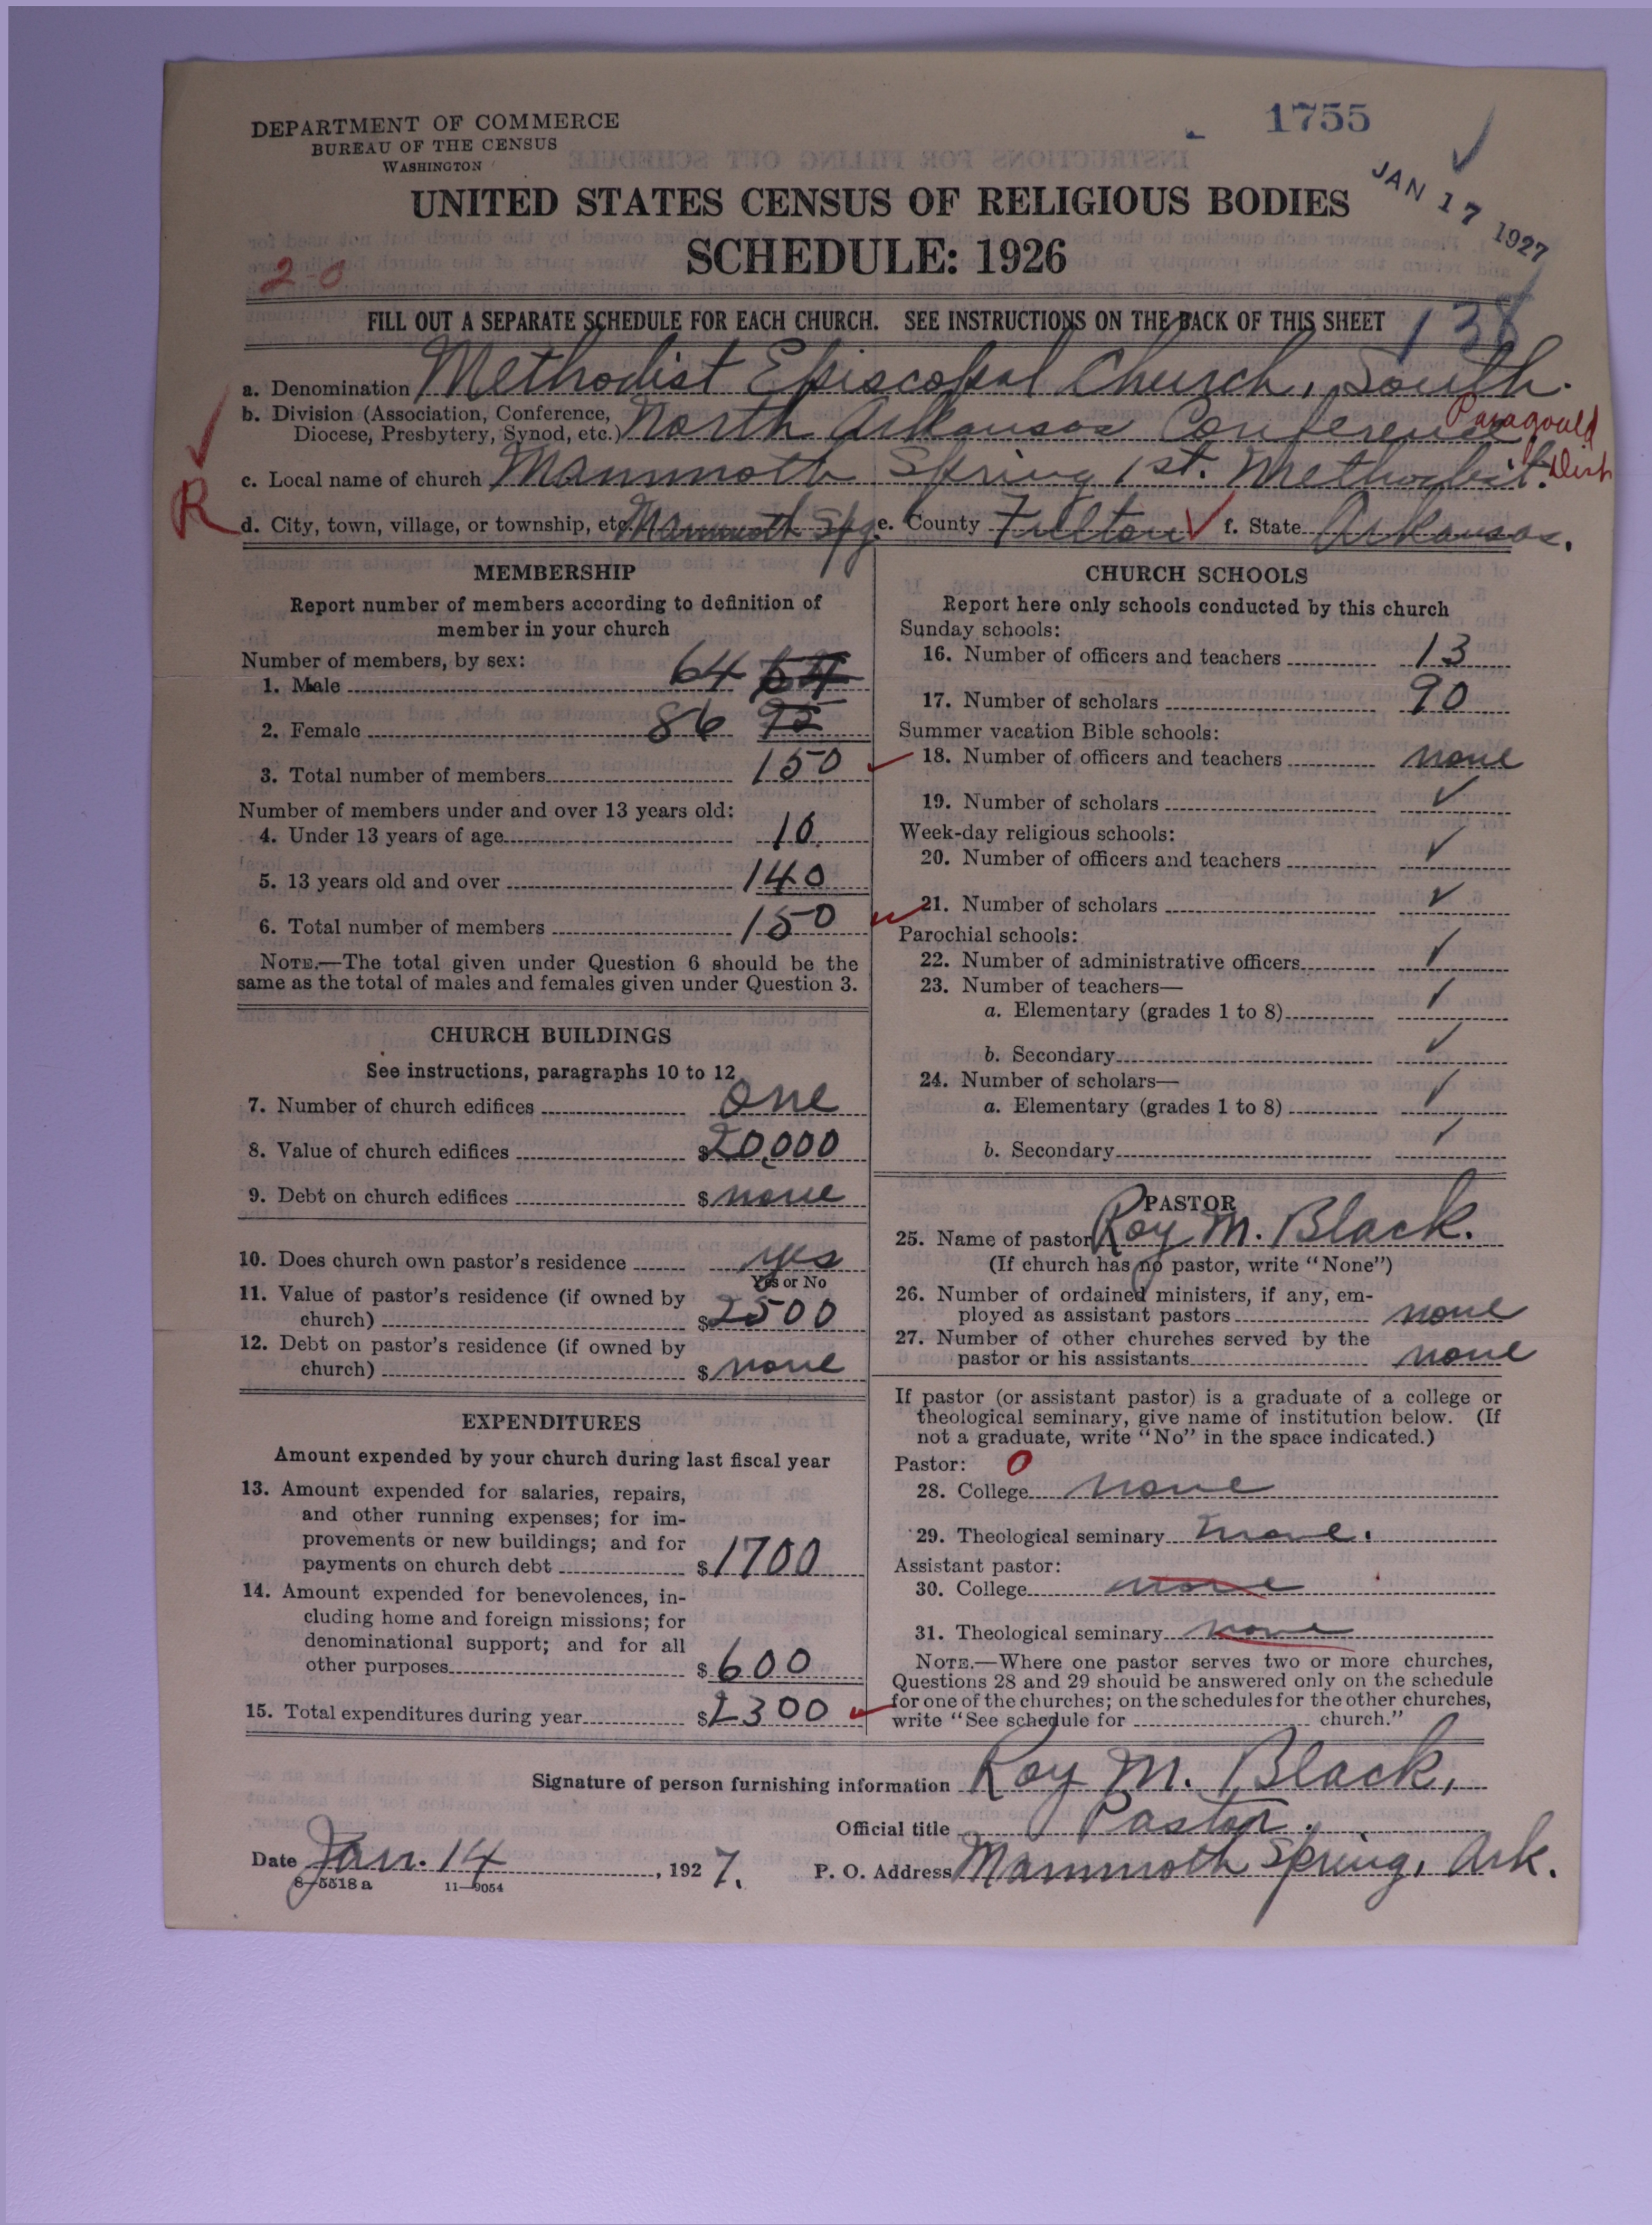 DEPARTMENT OF COMMERCE
BUREAU OF THE CENSUS
WASHINGTON
1755
JAN 17 1927
UNITED STATES CENSUS OF RELIGIOUS BODIES
SCHEDULE: 1926
2-0
FILL OUT A SEPARATE SCHEDULE FOR EACH CHURCH. SEE INSTRUCTIONS ON THE BACK OF THIS SHEET
138
a. Denomination Methodist Episcopal Church, South.
b. Division (Association, Conference, Diocese, Presbytery, Synod, etc.) North Arkansas Conference Paragould Dist
c. Local name of church Mammoth Spring 1st. Methodist.
R d. City, town, village, or township, etc. Mammoth Spg. e. County Fulton f. State Arkansas.
MEMBERSHIP
Report number of members according to definition of
member in your church
Number of members, by sex:
1. Male 64
2. Female 86
3. Total number of members 150
Number of members under and over 13 years old:
4. Under 13 years of age 10
5. 13 years old and over 140
6. Total number of members 150
NOTE.—The total given under Question 6 should be the
same as the total of males and females given under Question 3.
CHURCH BUILDINGS
See instructions, paragraphs 10 to 12
7. Number of church edifices one
8. Value of church edifices $20,000
9. Debt on church edifices $none
10. Does church own pastor's residence yes
Yes or No
11. Value of pastor's residence (if owned by
church) $2500
12. Debt on pastor's residence (if owned by
church) $none
EXPENDITURES
Amount expended by your church during last fiscal year
13. Amount expended for salaries, repairs,
and other running expenses; for im-
provements or new buildings; and for
payments on church debt $1700
14. Amount expended for benevolences, in-
cluding home and foreign missions; for
denominational support; and for all
other purposes $600
15. Total expenditures during year $2300
CHURCH SCHOOLS
Report here only schools conducted by this church
Sunday schools:
16. Number of officers and teachers 13
17. Number of scholars 90
Summer vacation Bible schools:
18. Number of officers and teachers none
19. Number of scholars ✓
Week-day religious schools:
20. Number of officers and teachers ✓
21. Number of scholars ✓
Parochial schools:
22. Number of administrative officers ✓
23. Number of teachers—
a. Elementary (grades 1 to 8) ✓
b. Secondary ✓
24. Number of scholars—
a. Elementary (grades 1 to 8) ✓
b. Secondary ✓
PASTOR
25. Name of pastor Roy M. Black.
(If church has no pastor, write "None")
26. Number of ordained ministers, if any, em-
ployed as assistant pastors none
27. Number of other churches served by the
pastor or his assistants none
If pastor (or assistant pastor) is a graduate of a college or
theological seminary, give name of institution below. (If
not a graduate, write "No" in the space indicated.)
Pastor: 0
28. College none
29. Theological seminary none.
Assistant pastor:
30. College none
31. Theological seminary none
NOTE.—Where one pastor serves two or more churches,
Questions 28 and 29 should be answered only on the schedule
for one of the churches; on the schedules for the other churches,
write "See schedule for church."
Signature of person furnishing information Roy M. Black,
Official title Pastor.
Date Jan. 14, 1927. P. O. Address Mammoth Spring, Ark.
8-5518a 11-9054